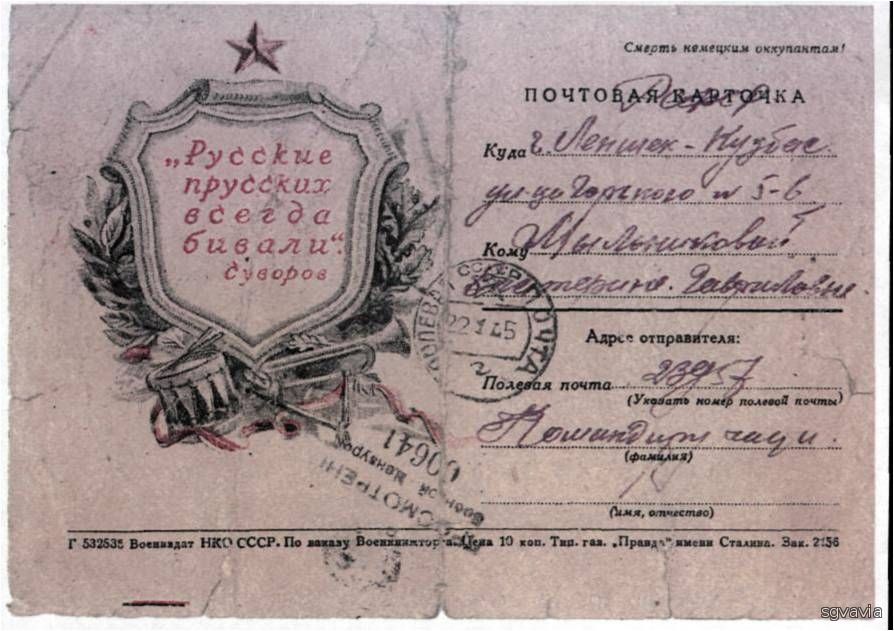 Смерть немецким оккупантам!
ПОЧТОВАЯ КАРТОЧКА
„Русские
прусских
всегда
бивали“.
Суворов
Куда г. Ленинск-Кузбас.
ул-ца Горького № 5-6
Кому Мыльниковой
Екатерине. Гавриловне.
ПОЛЕВАЯ
СССР
ПОЧТА
22 1 45
Адрес отправителя:
Полевая почта 23957
(Указать номер полевой почты)
Командира части.
(фамилия)
(имя, отчество)
Военной Цензурой
00641
Г 532535 Воениздат НКО СССР. По заказу Военкниготорга. Цена 10 коп. Тип. газ. „Правда“ имени Сталина. Зак. 2156
sgvavia